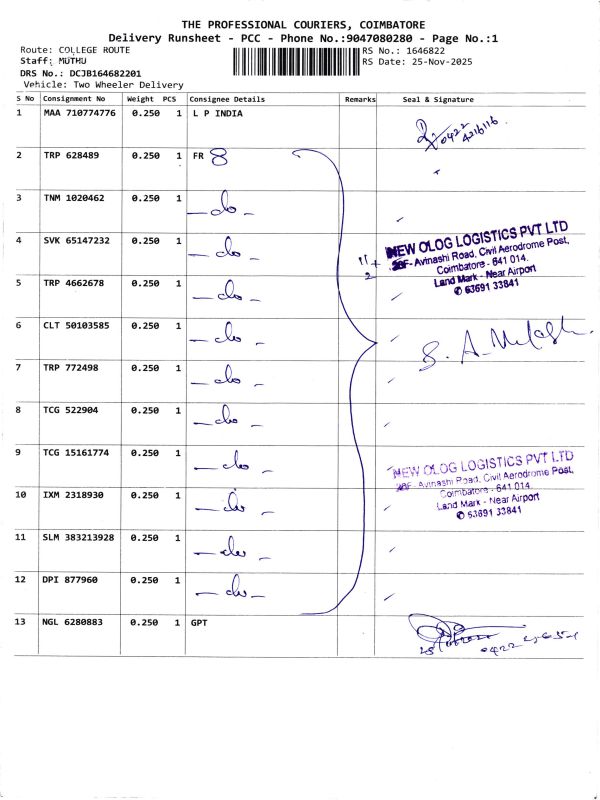 THE PROFESSIONAL COURIERS, COIMBATORE
Delivery Runsheet - PCC - Phone No.:9047080280 - Page No.:1
Route: COLLEGE ROUTE
RS No.: 1646822
Staff: MUTHU
RS Date: 25-Nov-2025
DRS No.: DCJB164682201
Vehicle: Two Wheeler Delivery
S No Consignment No Weight PCS Consignee Details Remarks Seal & Signature
1 MAA 710774776 0.250 1 L P INDIA
0422 4216116
2 TRP 628489 0.250 1 FR 8
3 TNM 1020462 0.250 1 - do -
4 SVK 65147232 0.250 1 - do -
NEW OLOG LOGISTICS PVT LTD
Avinashi Road, Civil Aerodrome Post,
Coimbatore - 641 014.
Land Mark - Near Airport
✆ 63691 33841
11 + 2
5 TRP 4662678 0.250 1 - do -
6 CLT 50103585 0.250 1 - do -
7 TRP 772498 0.250 1 - do -
8 TCG 522904 0.250 1 - do -
9 TCG 15161774 0.250 1 - do -
NEW OLOG LOGISTICS PVT LTD
Avinashi Road, Civil Aerodrome Post,
Coimbatore - 641 014.
Land Mark - Near Airport
✆ 63691 33841
10 IXM 2318930 0.250 1 - do -
11 SLM 383213928 0.250 1 - do -
12 DPI 877960 0.250 1 - do -
13 NGL 6280883 0.250 1 GPT
0422